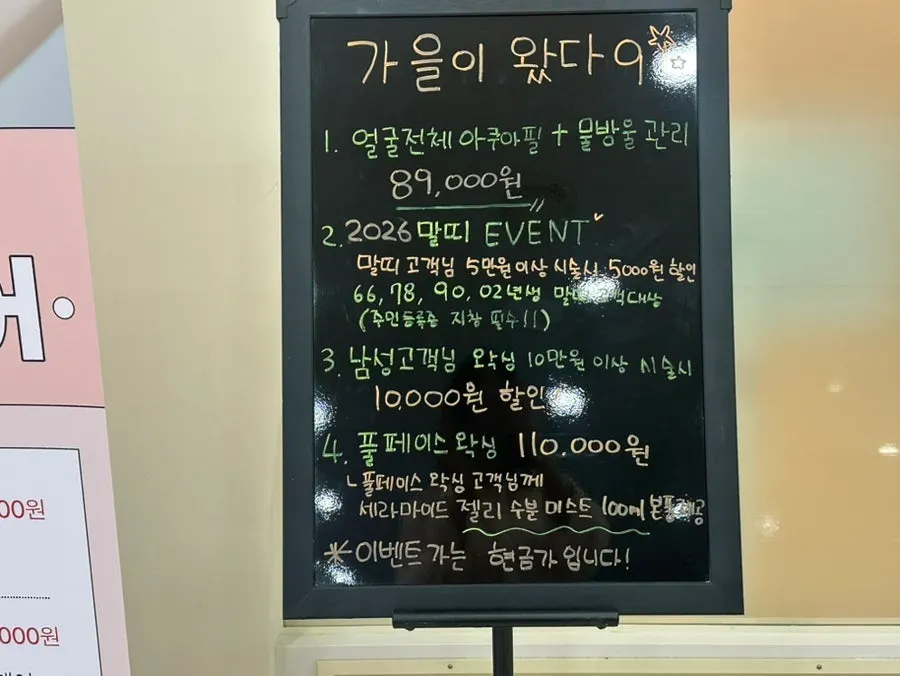 가을이 왔다9
1. 얼굴전체 아쿠아필 + 물방울 관리
89,000원
2. 2026 말띠 EVENT
말띠 고객님 5만원이상 시술시 5000원 할인
66, 78, 90, 02년생 말띠 고객대상
(주민등록증 지참 필수!!)
3. 남성고객님 왁싱 10만원 이상 시술시
10,000원 할인
4. 풀페이스왁싱 110.000원
ㄴ풀페이스 왁싱 고객님께
세라마이드 젤리 수분 미스트 100ml 본품제공
* 이벤트가는 현금가입니다!
00원
000원